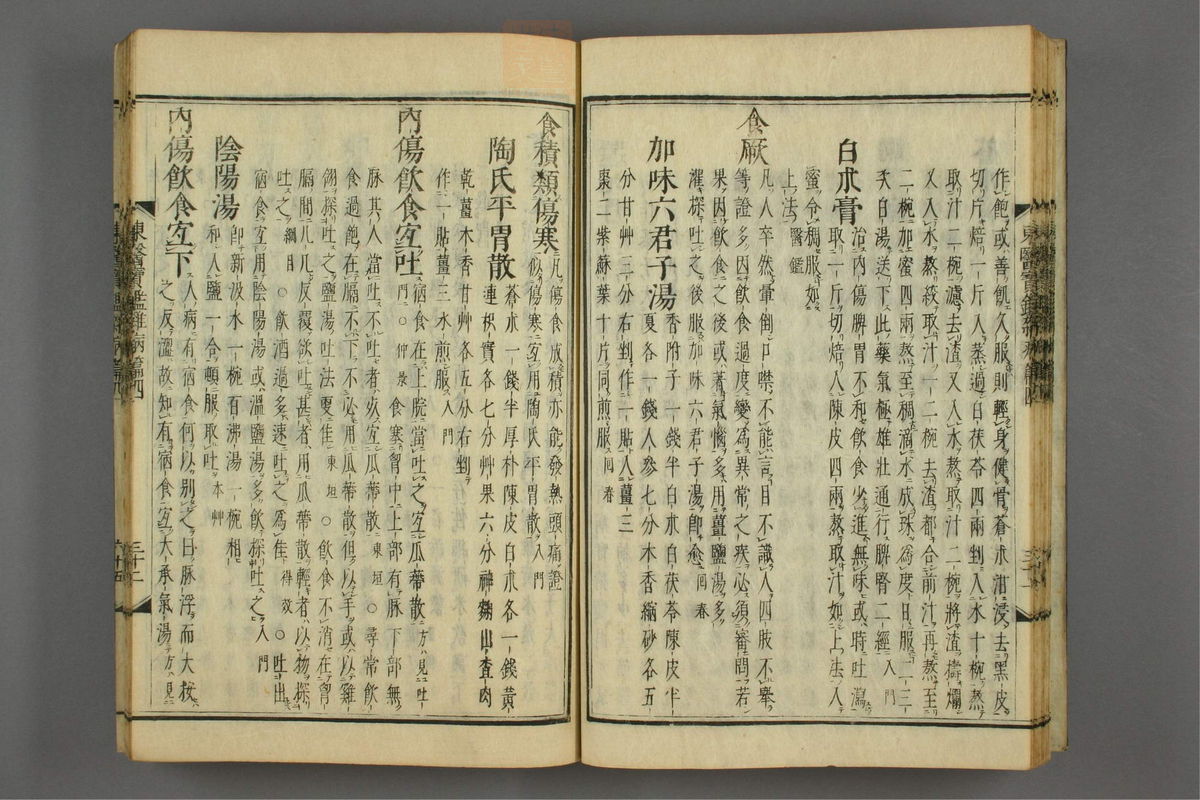 作飽或善飢久服則輕身健骨蒼朮泔浸去黑皮
切片焙一斤入蒸過白茯苓四兩剉入水十椀熬
取汁二椀濾去渣又入水熬取汁二椀將渣擣爛
又入水熬絞取汁一二椀去渣都合前汁再熬至
二椀加蜜四兩熬至稠滴水成珠爲度日服二三
次白湯送下此藥氣極雄壯通行脾腎二經入門
白朮膏
治內傷脾胃不和飮食少進無味或時吐瀉
白朮一斤切焙入陳皮四兩熬取汁如上法入
蜜令稠服如
上法醫鑑
食厥
凡人卒然暈倒口噤不能言目不識人四肢不擧
等證多因飮食過度變爲異常之疾必須審問若
果因飮食之後或着氣惱多用薑鹽湯多
灌探吐之後服加味六君子湯卽愈回春
加味六君子湯
香附子一錢半白朮白茯苓陳皮半
夏各一錢人參七分木香縮砂各五
分甘艸三分右剉作一貼入薑三
棗二紫蘇葉十片同煎服回春
食積類傷寒
凡傷食成積亦能發熱頭痛證
似傷寒宜用陶氏平胃散入門
陶氏平胃散
蒼朮一錢半厚朴陳皮白朮各一錢黃
連枳實各七分艸果六分神麴山査肉
乾薑木香甘艸各五分右剉
作一貼薑三水煎服入門
內傷飮食宜吐
宿食在上脘當吐之宜瓜蔕散方見吐
門○仲景食塞胷中上部有脉下部無
脉其人當吐不吐者死宜瓜蔕散東垣○尋常飮
食過飽在膈不下不必用瓜蔕散但以手或以雞
翎探吐之鹽湯吐法更佳東垣○飮食不消在胷
膈間兀兀反覆欲吐甚者用瓜蔕散輕者以物探
吐之綱目○飮酒過多速吐之爲佳得效○吐出
宿食宜用陰陽湯或溫鹽湯多飮探吐之入門
陰陽湯
卽新汲水一椀百沸湯一椀相
和入鹽一合頓服取吐本艸
內傷飮食宜下
人病有宿食何以別之曰脉浮而大按
之反濇故知有宿食宜大承氣湯方見